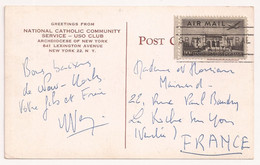 GREETINGS FROM
NATIONAL CATHOLIC COMMUNITY
SERVICE - USO CLUB
ARCHDIOCESE OF NEW YORK
641 LEXINGTON AVENUE
NEW YORK 22, N.Y.
POST
AIR MAIL
Bons baisers
de New-York
Votre fils et
Madame et Monsieur
26, Rue Paul Baudry
La Roche sur Yon
(Vendée)
FRANCE